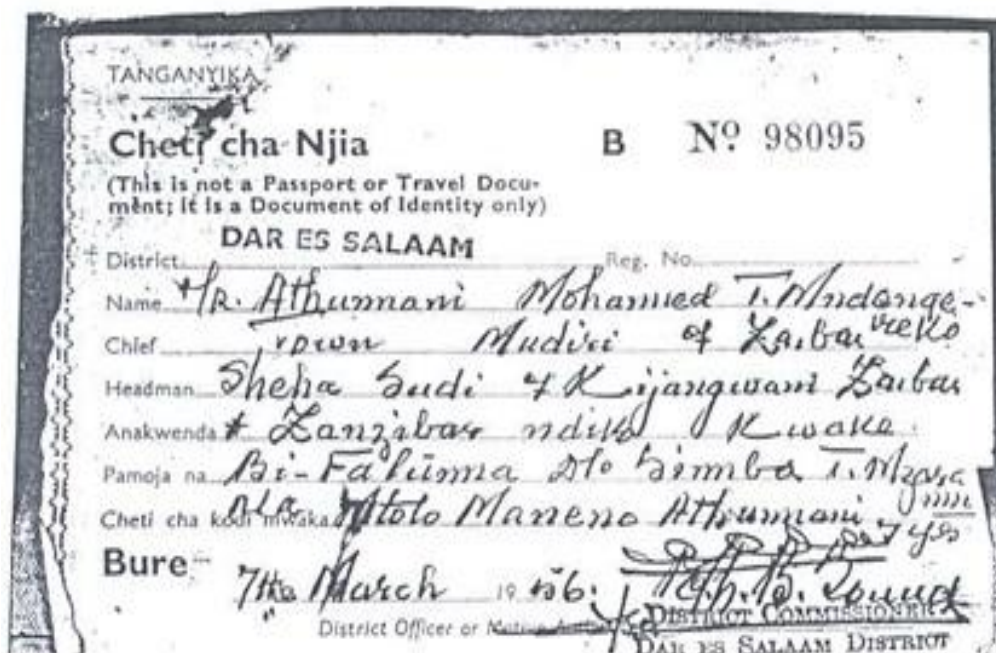 TANGANYIKA
Cheti cha Njia B Nº 98095
(This is not a Passport or Travel Docu-
ment; it is a Document of Identity only)
District DAR ES SALAAM Reg. No.
Name Mr. Athumani Mohamed T. Mndenge-
Chief Mudiri of Zaibar reko
Headman Sheha Sudi of Kijangwani Zaibar
Anakwenda Zanzibar ndiko Kwake
Pamoja na Bi-Fatuma D/o Simba T.
Cheti cha kodi mwaka Mtoto Maneno Athumani yes
Bure
7th March 1956.
District Officer or Native DISTRICT COMMISSIONER
DAR ES SALAAM DISTRICT